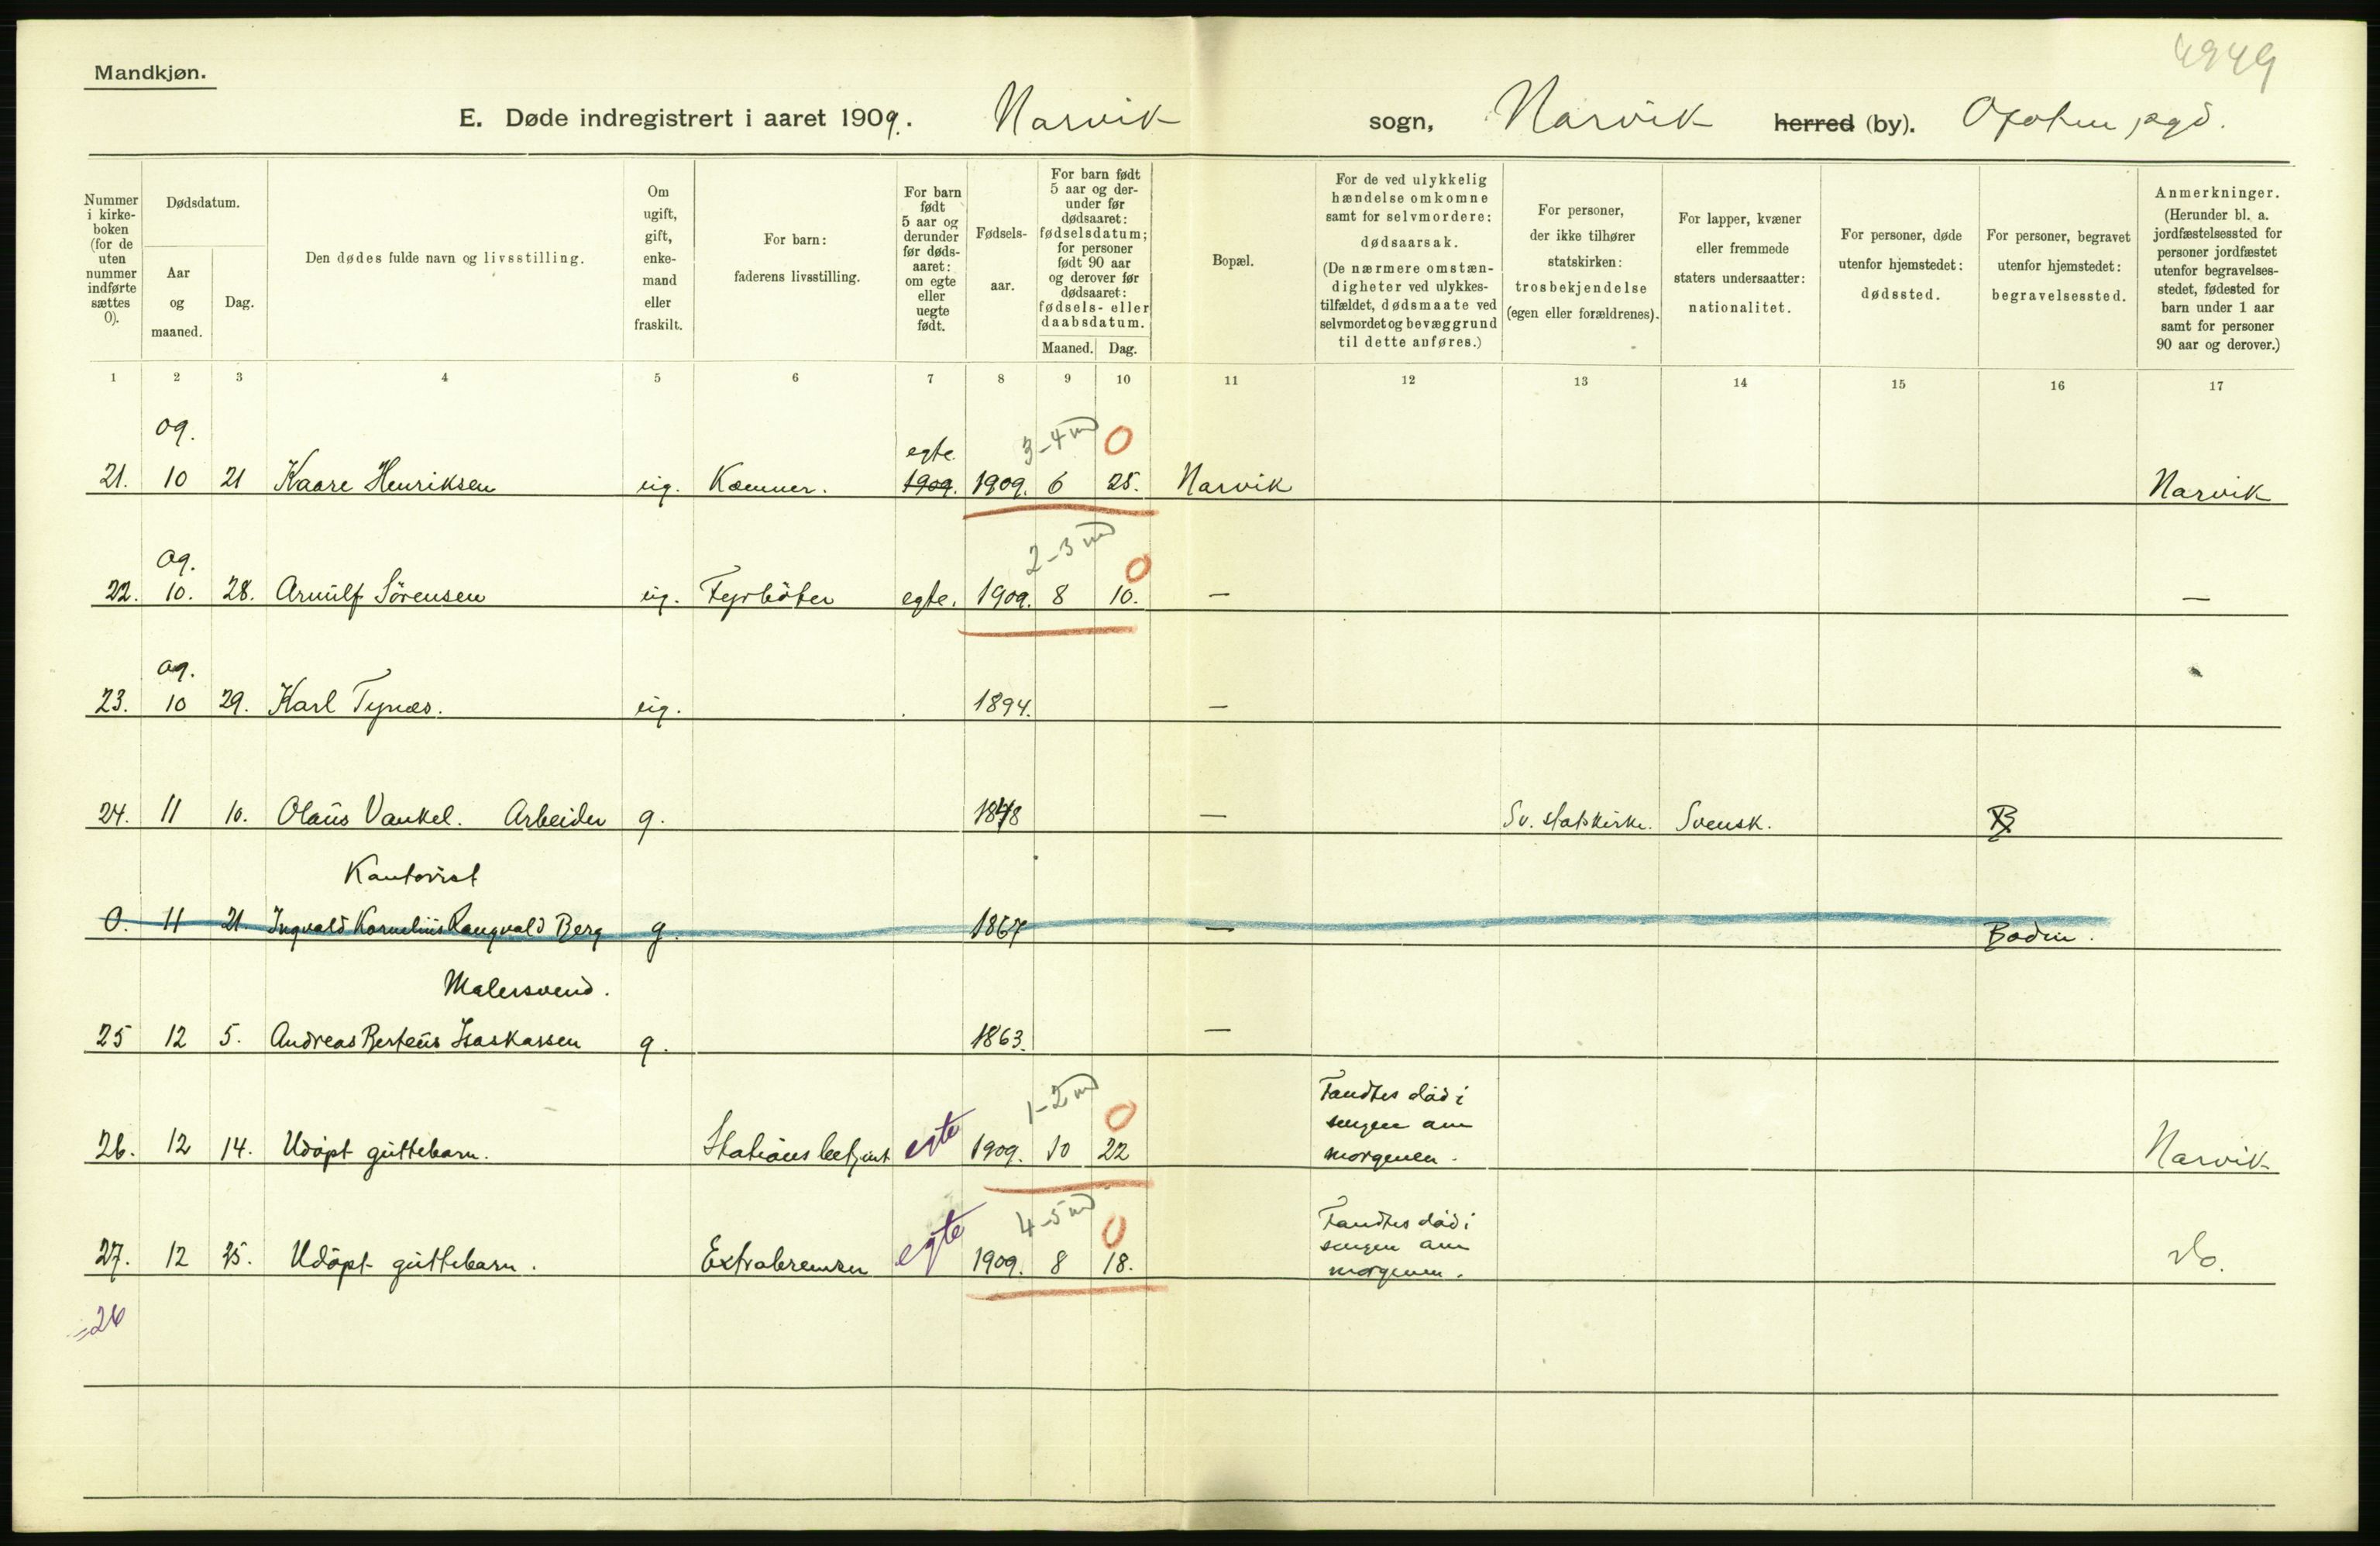 4949
Mandkjøn.
E. Døde indregistrert i aaret 1909. Narvik sogn, Narvik herred (by). Ofoten pgd.
Nummer i kirke-boken (for de uten nummer indførte sættes 0).
Dødsdatum.
Aar og maaned.
Dag.
Den dødes fulde navn og livsstilling.
Om ugift, gift, enke-mand eller fraskilt.
For barn: faderens livsstilling.
For barn født 5 aar og derunder før døds-aaret: om egte eller uegte født.
Fødsels-aar.
For barn født 5 aar og der-under før dødsaaret: fødselsdatum; for personer født 90 aar og derover før dødsaaret: fødsels- eller daabsdatum.
Maaned. Dag.
Bopæl.
For de ved ulykkelig hændelse omkomne samt for selvmordere: dødsaarsak. (De nærmere omstæn-digheter ved ulykkes-tilfældet, dødsmaate ved selvmordet og bevæggrund til dette anføres.)
For personer, der ikke tilhører statskirken: trosbekjendelse (egen eller forældrenes).
For lapper, kvæner eller fremmede staters undersaatter: nationalitet.
For personer, døde utenfor hjemstedet: dødssted.
For personer, begravet utenfor hjemstedet: begravelsessted.
Anmerkninger. (Herunder bl. a. jordfæstelsessted for personer jordfæstet utenfor begravelses-stedet, fødested for barn under 1 aar samt for personer 90 aar og derover.)
1 2 3 4 5 6 7 8 9 10 11 12 13 14 15 16 17
09. egte. 3-4 md 0
21. 10 21 Kaare Henriksen ug. Kæmner. 1909. 1909. 6 25. Narvik Narvik
09. 2-3 md 0
22. 10. 28. Arnulf Sörensen ug. Fyrböter egte. 1909. 8 10. — —
09.
23. 10 29. Karl Tynæs. ug. 1894. —
24. 11 10. Olaus Vankel. Arbeider g. 1848 — Sv. statskirke. Svensk. B
Kontorist
0. 11 21. Ingvald Kornelius Rangvald Berg g. 1867 — Bodin.
Malersvend.
25 12 5. Andreas Berteus Isaksen g. 1863. —
1-2 md 0 Fandtes död i
sengen om
26. 12 14. Udöpt guttebarn. Stationsbetjent egte 1909. 10 22 morgenen. Narvik
4-5 md 0 Fandtes död i
sengen om
27. 12 25. Udöpt guttebarn. Extrabremser egte 1909. 8 18. morgenen. do.
=26